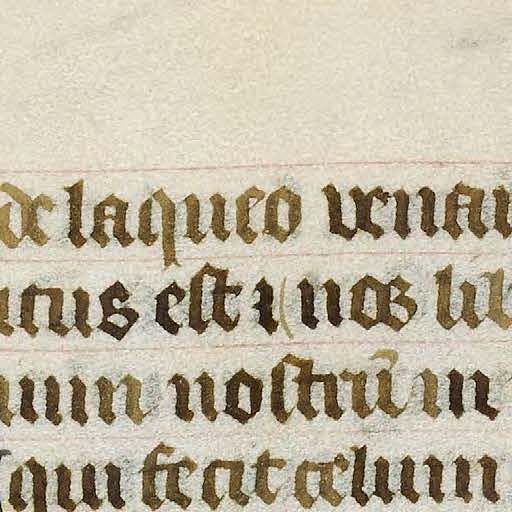 de laqueo venan
itus est ⁊ nos lib
ium nostrũ in
qui fecit celum